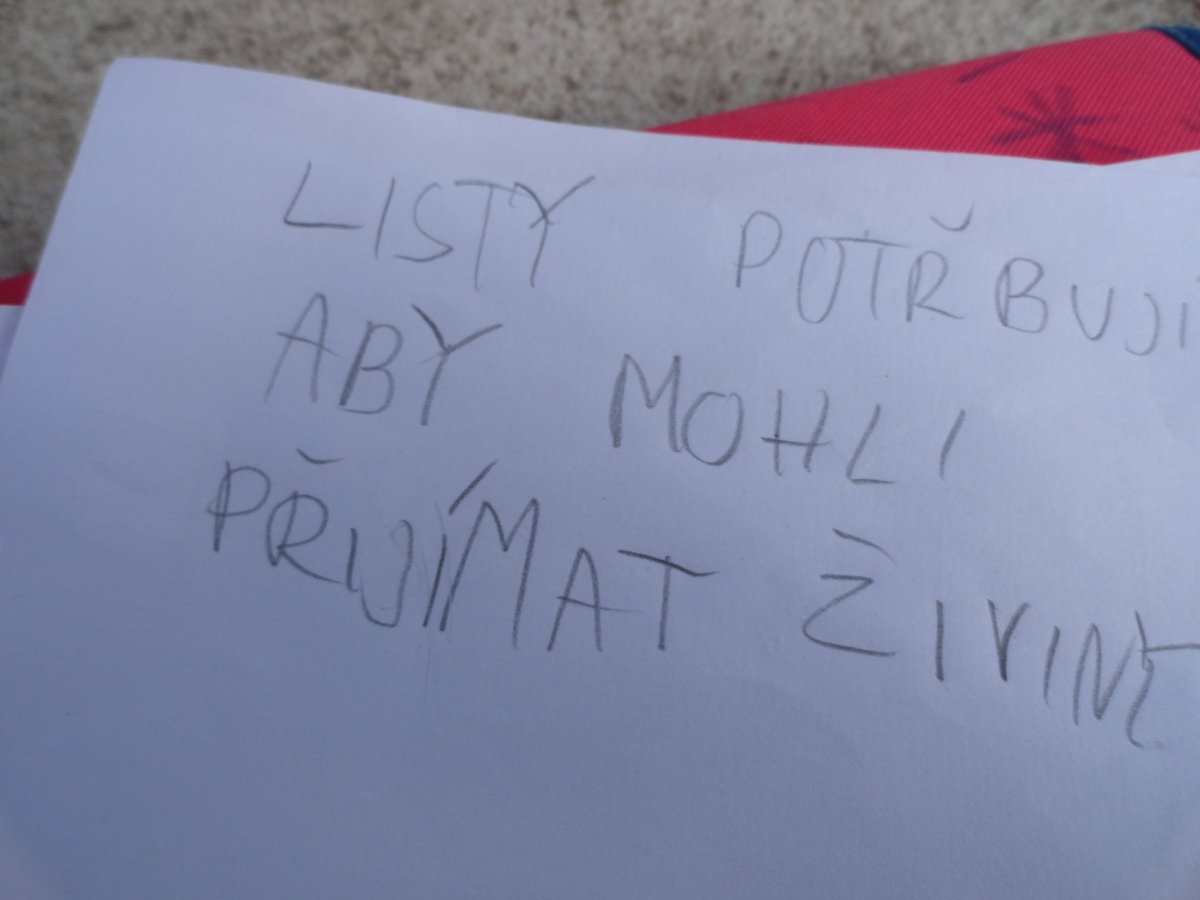 LISTY POTŘBUJÍ
ABY MOHLI
PŘIJÍMAT